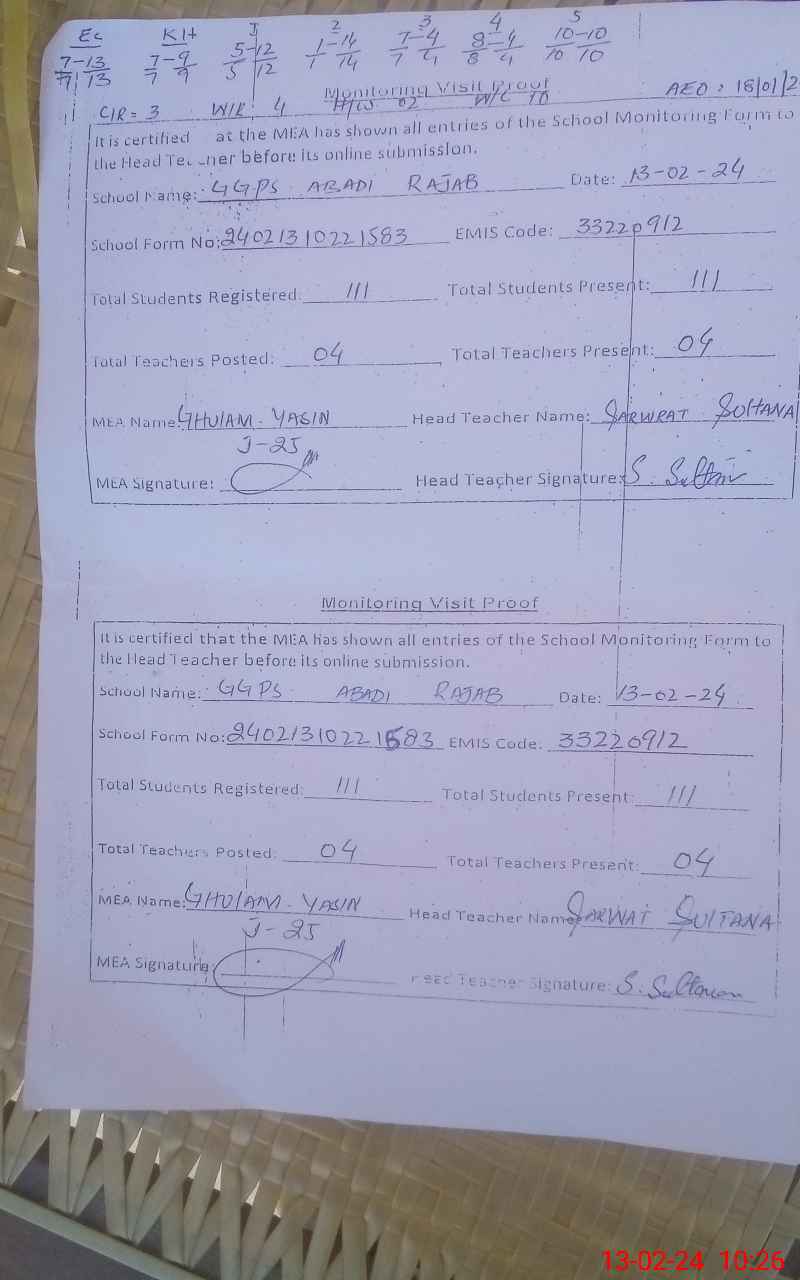 Ec K1+ I 2 3 4 5
7-13 7-9 5-12 1-14 7-4 8-4 10-10
7 13 7 9 5 12 1 14 7 4 8 4 10 10
Monitoring Visit Proof AEO: 18/01/2
C/R= 3 W/R: 4 02 W/C 10
It is certified at the MEA has shown all entries of the School Monitoring Form to
the Head Teacher before its online submission.
School Name: GGPS ABADI RAJAB Date: 13-02-24
School Form No: 24021310221583 EMIS Code: 33220912
Total Students Registered: 111 Total Students Present: 111
Total Teachers Posted: 04 Total Teachers Present: 04
MEA Name: GHULAM. YASIN Head Teacher Name: SARWRAT SULTANA
J-25
MEA Signature: Head Teacher Signature: S. Sultan
Monitoring Visit Proof
It is certified that the MEA has shown all entries of the School Monitoring Form to
the Head Teacher before its online submission.
School Name: GGPS ABADI RAJAB Date: 13-02-24
School Form No: 24021310221583 EMIS Code: 33220912
Total Students Registered: 111 Total Students Present: 111
Total Teachers Posted: 04 Total Teachers Present: 04
MEA Name: GHULAM. YASIN Head Teacher Name: SARWAT SULTANA
J-25
MEA Signature: Head Teacher Signature: S. Sultana
13-02-24 10:26